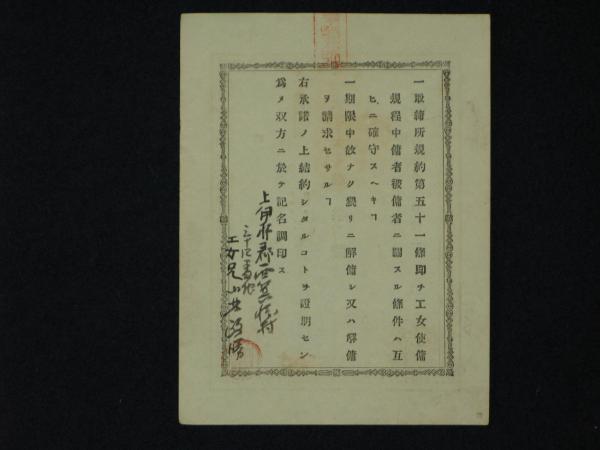 一取締所規約第五十一條即チ工女使傭
規程中傭者被傭者ニ關スル條件ハ互
ヒニ確守スヘキヿ
一期限中故ナク濫リニ解傭シ又ハ解傭
ヲ請求セサルヿ
右承諾ノ上結約シタルコトヲ證明セン
爲メ双方ニ於テ記名調印ス
上伊那郡西箕輪村
工女兄